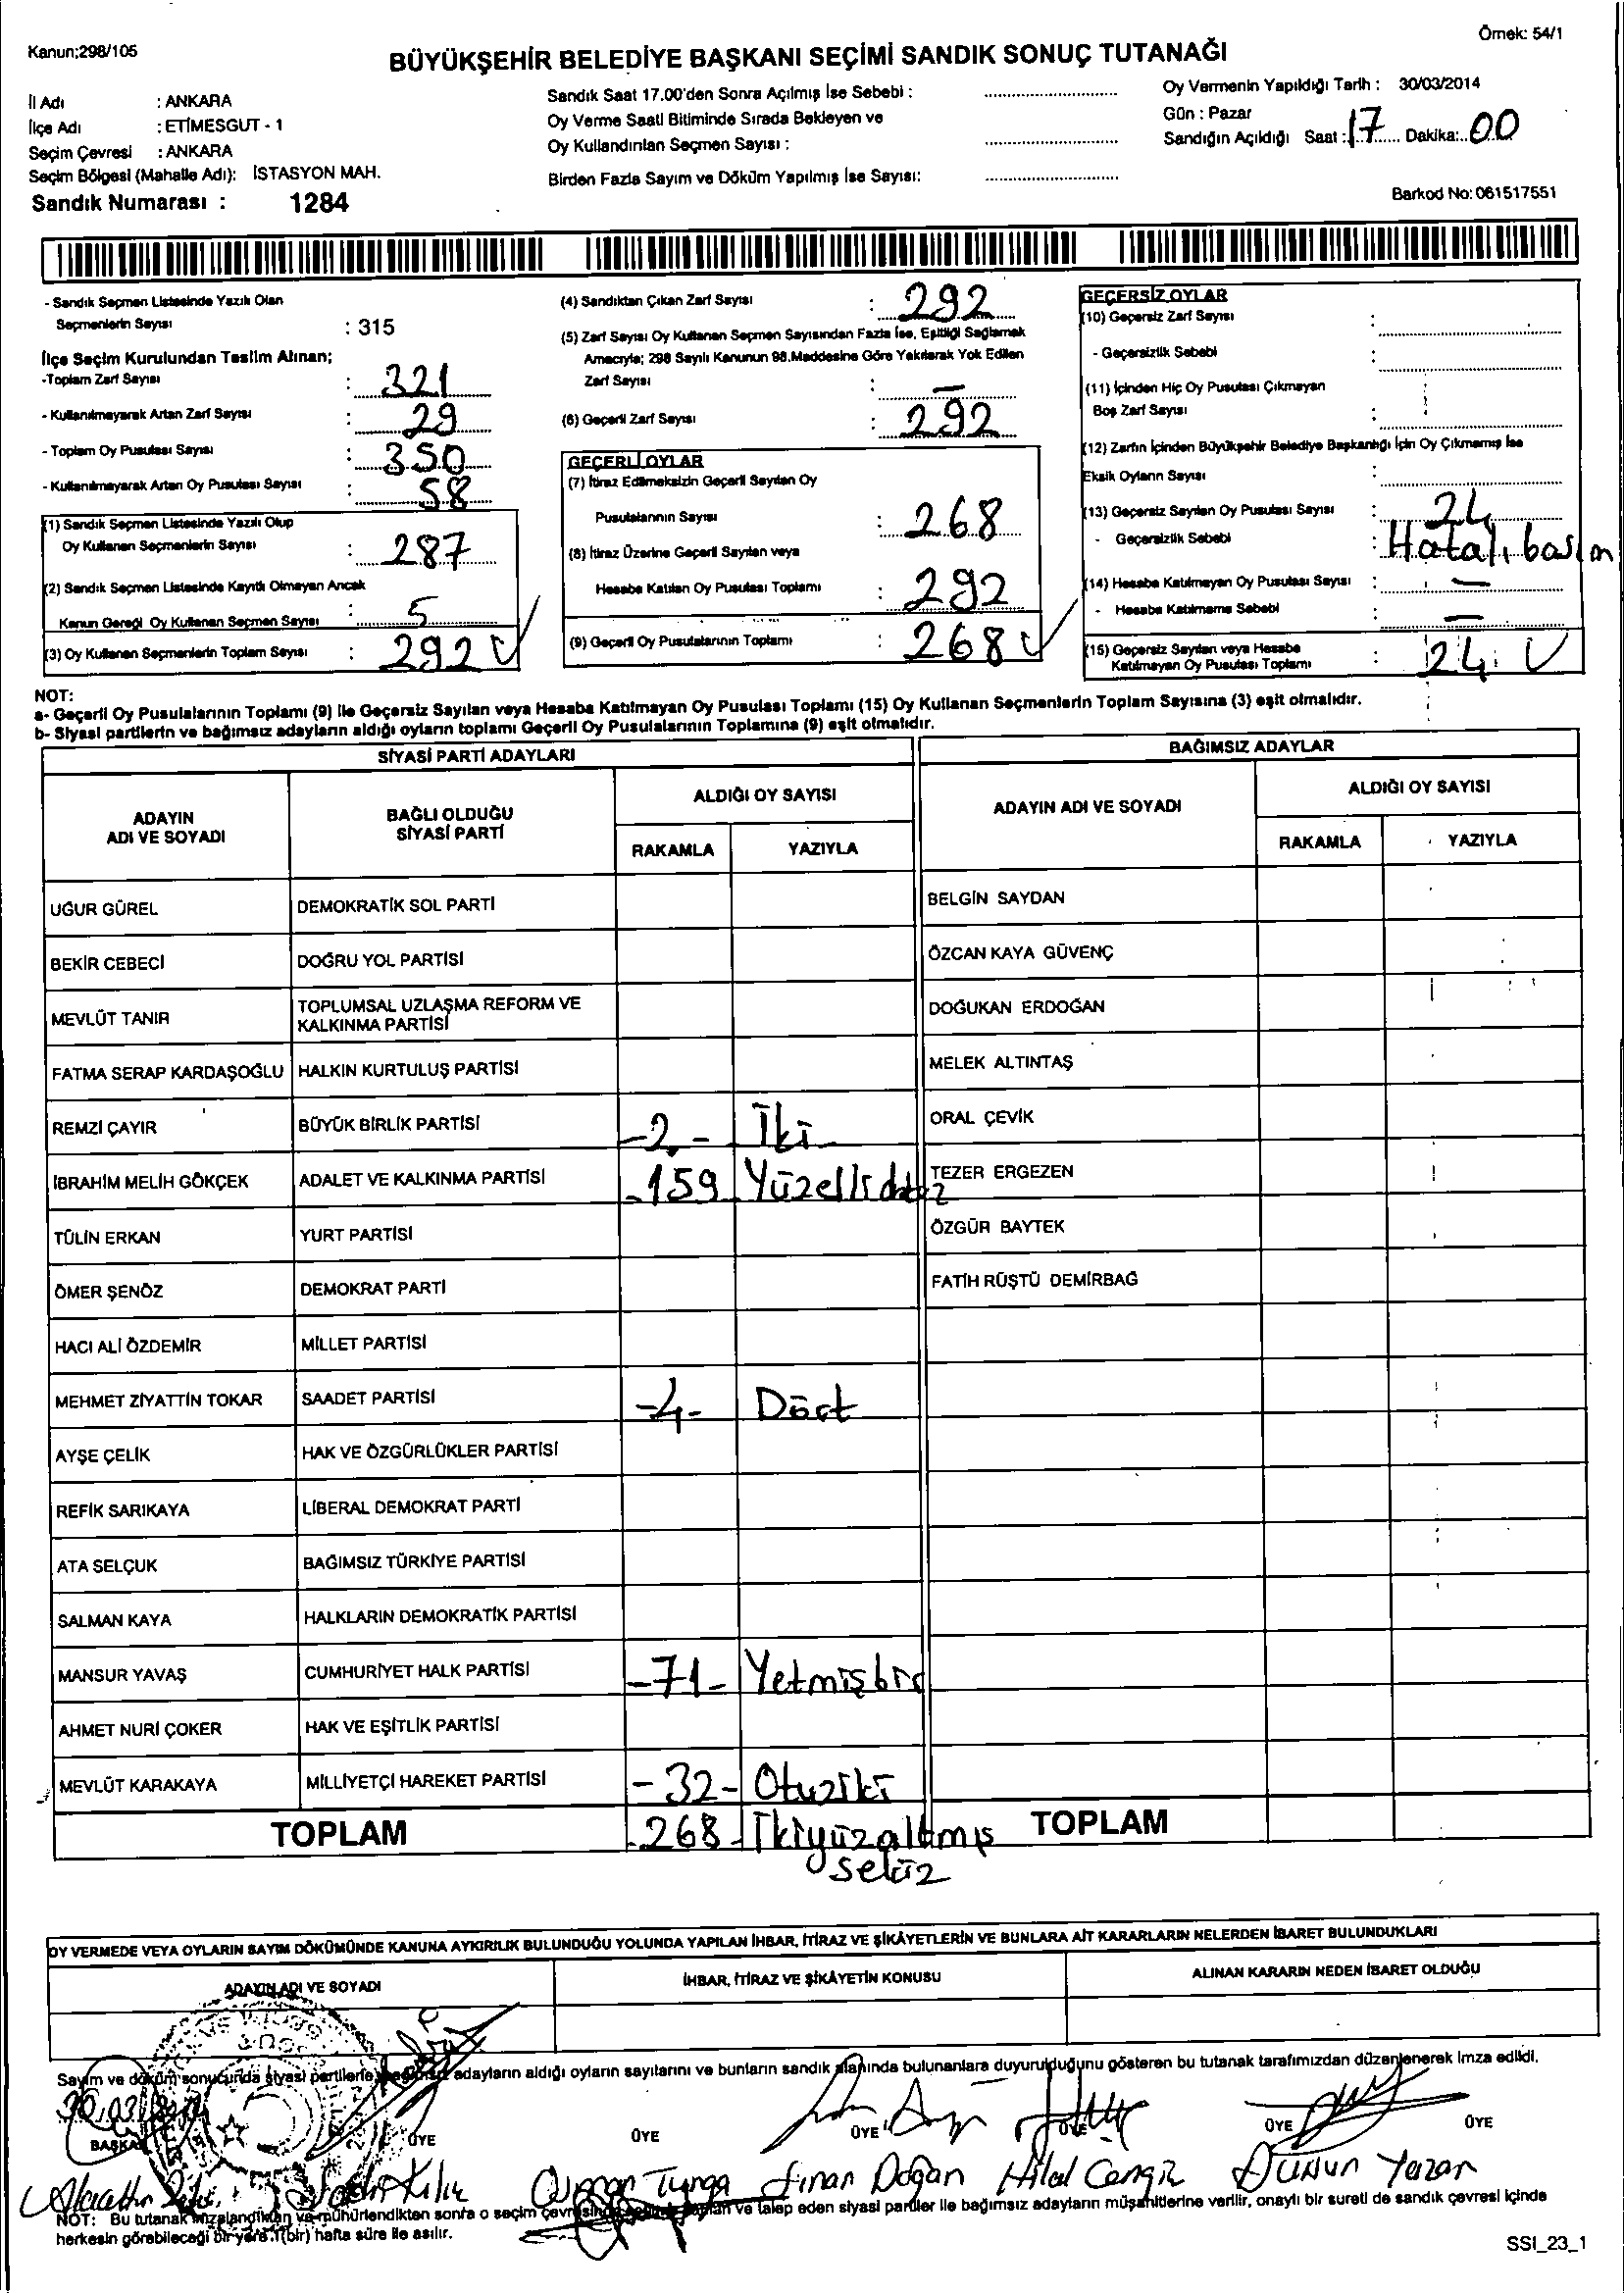 Kanun;298/105
Örnek: 54/1
BÜYÜKŞEHİR BELEDİYE BAŞKANI SEÇİMİ SANDIK SONUÇ TUTANAĞI
İl Adı : ANKARA
İlçe Adı : ETİMESGUT - 1
Seçim Çevresi : ANKARA
Seçim Bölgesi (Mahalle Adı): İSTASYON MAH.
Sandık Numarası : 1284
Sandık Saat 17.00'den Sonra Açılmış İse Sebebi :
Oy Verme Saati Bitiminde Sırada Bekleyen ve
Oy Kullandırılan Seçmen Sayısı :
Birden Fazla Sayım ve Döküm Yapılmış İse Sayısı:
Oy Vermenin Yapıldığı Tarih : 30/03/2014
Gün : Pazar
Sandığın Açıldığı Saat : 17 Dakika: 00
Barkod No: 061517551
- Sandık Seçmen Listesinde Yazılı Olan
Seçmenlerin Sayısı : 315
İlçe Seçim Kurulundan Teslim Alınan;
-Toplam Zarf Sayısı : 321
- Kullanılmayarak Artan Zarf Sayısı : 29
- Toplam Oy Pusulası Sayısı : 350
- Kullanılmayarak Artan Oy Pusulası Sayısı : 58
(1) Sandık Seçmen Listesinde Yazılı Olup
Oy Kullanan Seçmenlerin Sayısı : 287
(2) Sandık Seçmen Listesinde Kayıtlı Olmayan Ancak
Kanun Gereği Oy Kullanan Seçmen Sayısı : 5
(3) Oy Kullanan Seçmenlerin Toplam Sayısı : 292
(4) Sandıktan Çıkan Zarf Sayısı : 292
(5) Zarf Sayısı Oy Kullanan Seçmen Sayısından Fazla İse, Eşitliği Sağlamak
Amacıyla; 298 Sayılı Kanunun 98.Maddesine Göre Yakılarak Yok Edilen
Zarf Sayısı : —
(6) Geçerli Zarf Sayısı : 292
GEÇERLİ OYLAR
(7) İtiraz Edilmeksizin Geçerli Sayılan Oy
Pusulalarının Sayısı : 268
(8) İtiraz Üzerine Geçerli Sayılan veya
Hesaba Katılan Oy Pusulası Toplamı : 292
(9) Geçerli Oy Pusulalarının Toplamı : 268
GEÇERSİZ OYLAR
(10) Geçersiz Zarf Sayısı :
- Geçersizlik Sebebi :
(11) İçinden Hiç Oy Pusulası Çıkmayan
Boş Zarf Sayısı :
(12) Zarfın İçinden Büyükşehir Belediye Başkanlığı İçin Oy Çıkmamış İse
Eksik Oyların Sayısı :
(13) Geçersiz Sayılan Oy Pusulası Sayısı : 24
- Geçersizlik Sebebi : Hatalı basım
(14) Hesaba Katılmayan Oy Pusulası Sayısı : —
- Hesaba Katılmama Sebebi : —
(15) Geçersiz Sayılan veya Hesaba
Katılmayan Oy Pusulası Toplamı : 24
NOT:
a- Geçerli Oy Pusulalarının Toplamı (9) ile Geçersiz Sayılan veya Hesaba Katılmayan Oy Pusulası Toplamı (15) Oy Kullanan Seçmenlerin Toplam Sayısına (3) eşit olmalıdır.
b- Siyasi partilerin ve bağımsız adayların aldığı oyların toplamı Geçerli Oy Pusulalarının Toplamına (9) eşit olmalıdır.
SİYASİ PARTİ ADAYLARI
BAĞIMSIZ ADAYLAR
ADAYIN
ADI VE SOYADI
BAĞLI OLDUĞU
SİYASİ PARTİ
ALDIĞI OY SAYISI
RAKAMLA YAZIYLA
ADAYIN ADI VE SOYADI
ALDIĞI OY SAYISI
RAKAMLA YAZIYLA
UĞUR GÜREL DEMOKRATİK SOL PARTİ BELGİN SAYDAN
BEKİR CEBECİ DOĞRU YOL PARTİSİ ÖZCAN KAYA GÜVENÇ
MEVLÜT TANIR TOPLUMSAL UZLAŞMA REFORM VE
KALKINMA PARTİSİ DOĞUKAN ERDOĞAN
FATMA SERAP KARDAŞOĞLU HALKIN KURTULUŞ PARTİSİ MELEK ALTINTAŞ
REMZİ ÇAYIR BÜYÜK BİRLİK PARTİSİ -2- İki ORAL ÇEVİK
İBRAHİM MELİH GÖKÇEK ADALET VE KALKINMA PARTİSİ -159 Yüzellidokuz TEZER ERGEZEN
TÜLİN ERKAN YURT PARTİSİ ÖZGÜR BAYTEK
ÖMER ŞENÖZ DEMOKRAT PARTİ FATİH RÜŞTÜ DEMİRBAĞ
HACI ALİ ÖZDEMİR MİLLET PARTİSİ
MEHMET ZİYATTİN TOKAR SAADET PARTİSİ -4- Dört
AYŞE ÇELİK HAK VE ÖZGÜRLÜKLER PARTİSİ
REFİK SARIKAYA LİBERAL DEMOKRAT PARTİ
ATA SELÇUK BAĞIMSIZ TÜRKİYE PARTİSİ
SALMAN KAYA HALKLARIN DEMOKRATİK PARTİSİ
MANSUR YAVAŞ CUMHURİYET HALK PARTİSİ -71- Yetmişbir
AHMET NURİ ÇOKER HAK VE EŞİTLİK PARTİSİ
MEVLÜT KARAKAYA MİLLİYETÇİ HAREKET PARTİSİ -32- Otuziki
TOPLAM -268- İkiyüzaltmış TOPLAM
sekiz
OY VERMEDE VEYA OYLARIN SAYIM DÖKÜMÜNDE KANUNA AYKIRILIK BULUNDUĞU YOLUNDA YAPILAN İHBAR, İTİRAZ VE ŞİKÂYETLERİN VE BUNLARA AİT KARARLARIN NELERDEN İBARET BULUNDUKLARI
ADAYIN ADI VE SOYADI İHBAR, İTİRAZ VE ŞİKÂYETİN KONUSU ALINAN KARARIN NEDEN İBARET OLDUĞU
Sayım ve döküm sonucunda siyasi partilerle adayların aldığı oyların sayılarını ve bunların sandık alanında bulunanlara duyurulduğunu gösteren bu tutanak tarafımızdan düzenlenerek imza edildi.
BAŞKAN ÜYE ÜYE ÜYE ÜYE ÜYE ÜYE
Kılıç Osman Tunga Sinan Doğan Hilal Cengiz Yazar
NOT: Bu tutanak imzalandıktan ve mühürlendikten sonra o seçim çevresinde ve talep eden siyasi partiler ile bağımsız adayların müşahitlerine verilir, onaylı bir sureti de sandık çevresi içinde
herkesin görebileceği bir yere 1(bir) hafta süre ile asılır.
SSI_23_1